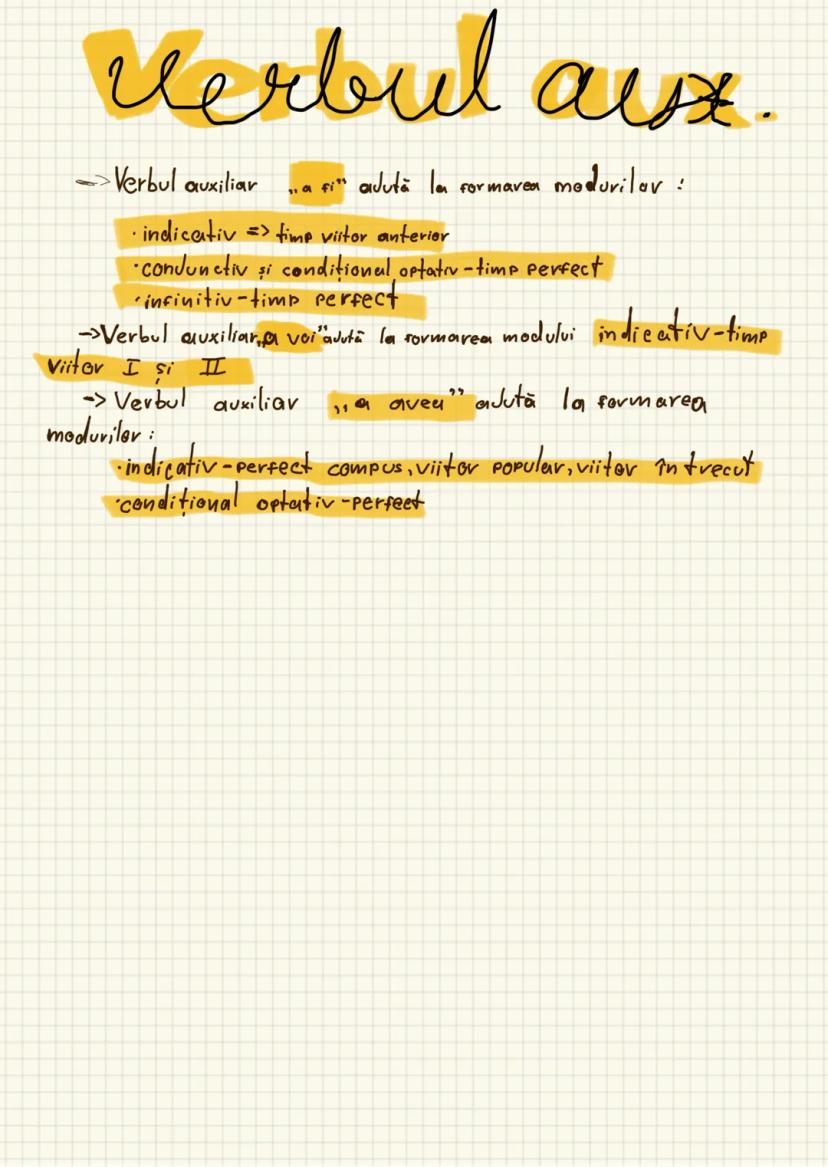 Verbul aux.
=> Verbul auxiliar „a fi” ajută la formarea modurilor :
· indicativ => timp viitor anterior
· conjunctiv și condițional optativ - timp perfect
· infinitiv - timp perfect
-> Verbul auxiliar „a voi” ajută la formarea modului indicativ - timp
viitor I și II
-> Verbul auxiliar „a avea” ajută la formarea
modurilor :
· indicativ - perfect compus, viitor popular, viitor în trecut
· condițional optativ - perfect